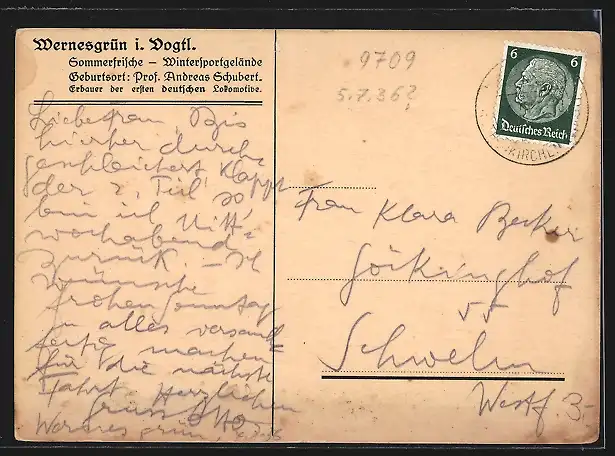 Wernesgrün i. Vogtl.
Sommerfrische – Wintersportgelände
Geburtsort: Prof. Andreas Schubert.
Erbauer der ersten deutschen Lokomotive.
9709
5.7.36?
6 6
Deutsches Reich
KIRCHE
Liebe Frau, Bis
hierher durch-
geschleichert. Klappt
der 2. Teil so,
bin ich Mitt-
wochabend
zurück. – Ich
wünsche
frohen Sonntag
u. alles
machen
für die nächste
Fahrt. Herzlichen
Gruss Otto
Wernesgrün,
Frau Klara Becker
Göckinghof
55
Schwelm
Westf
3,-